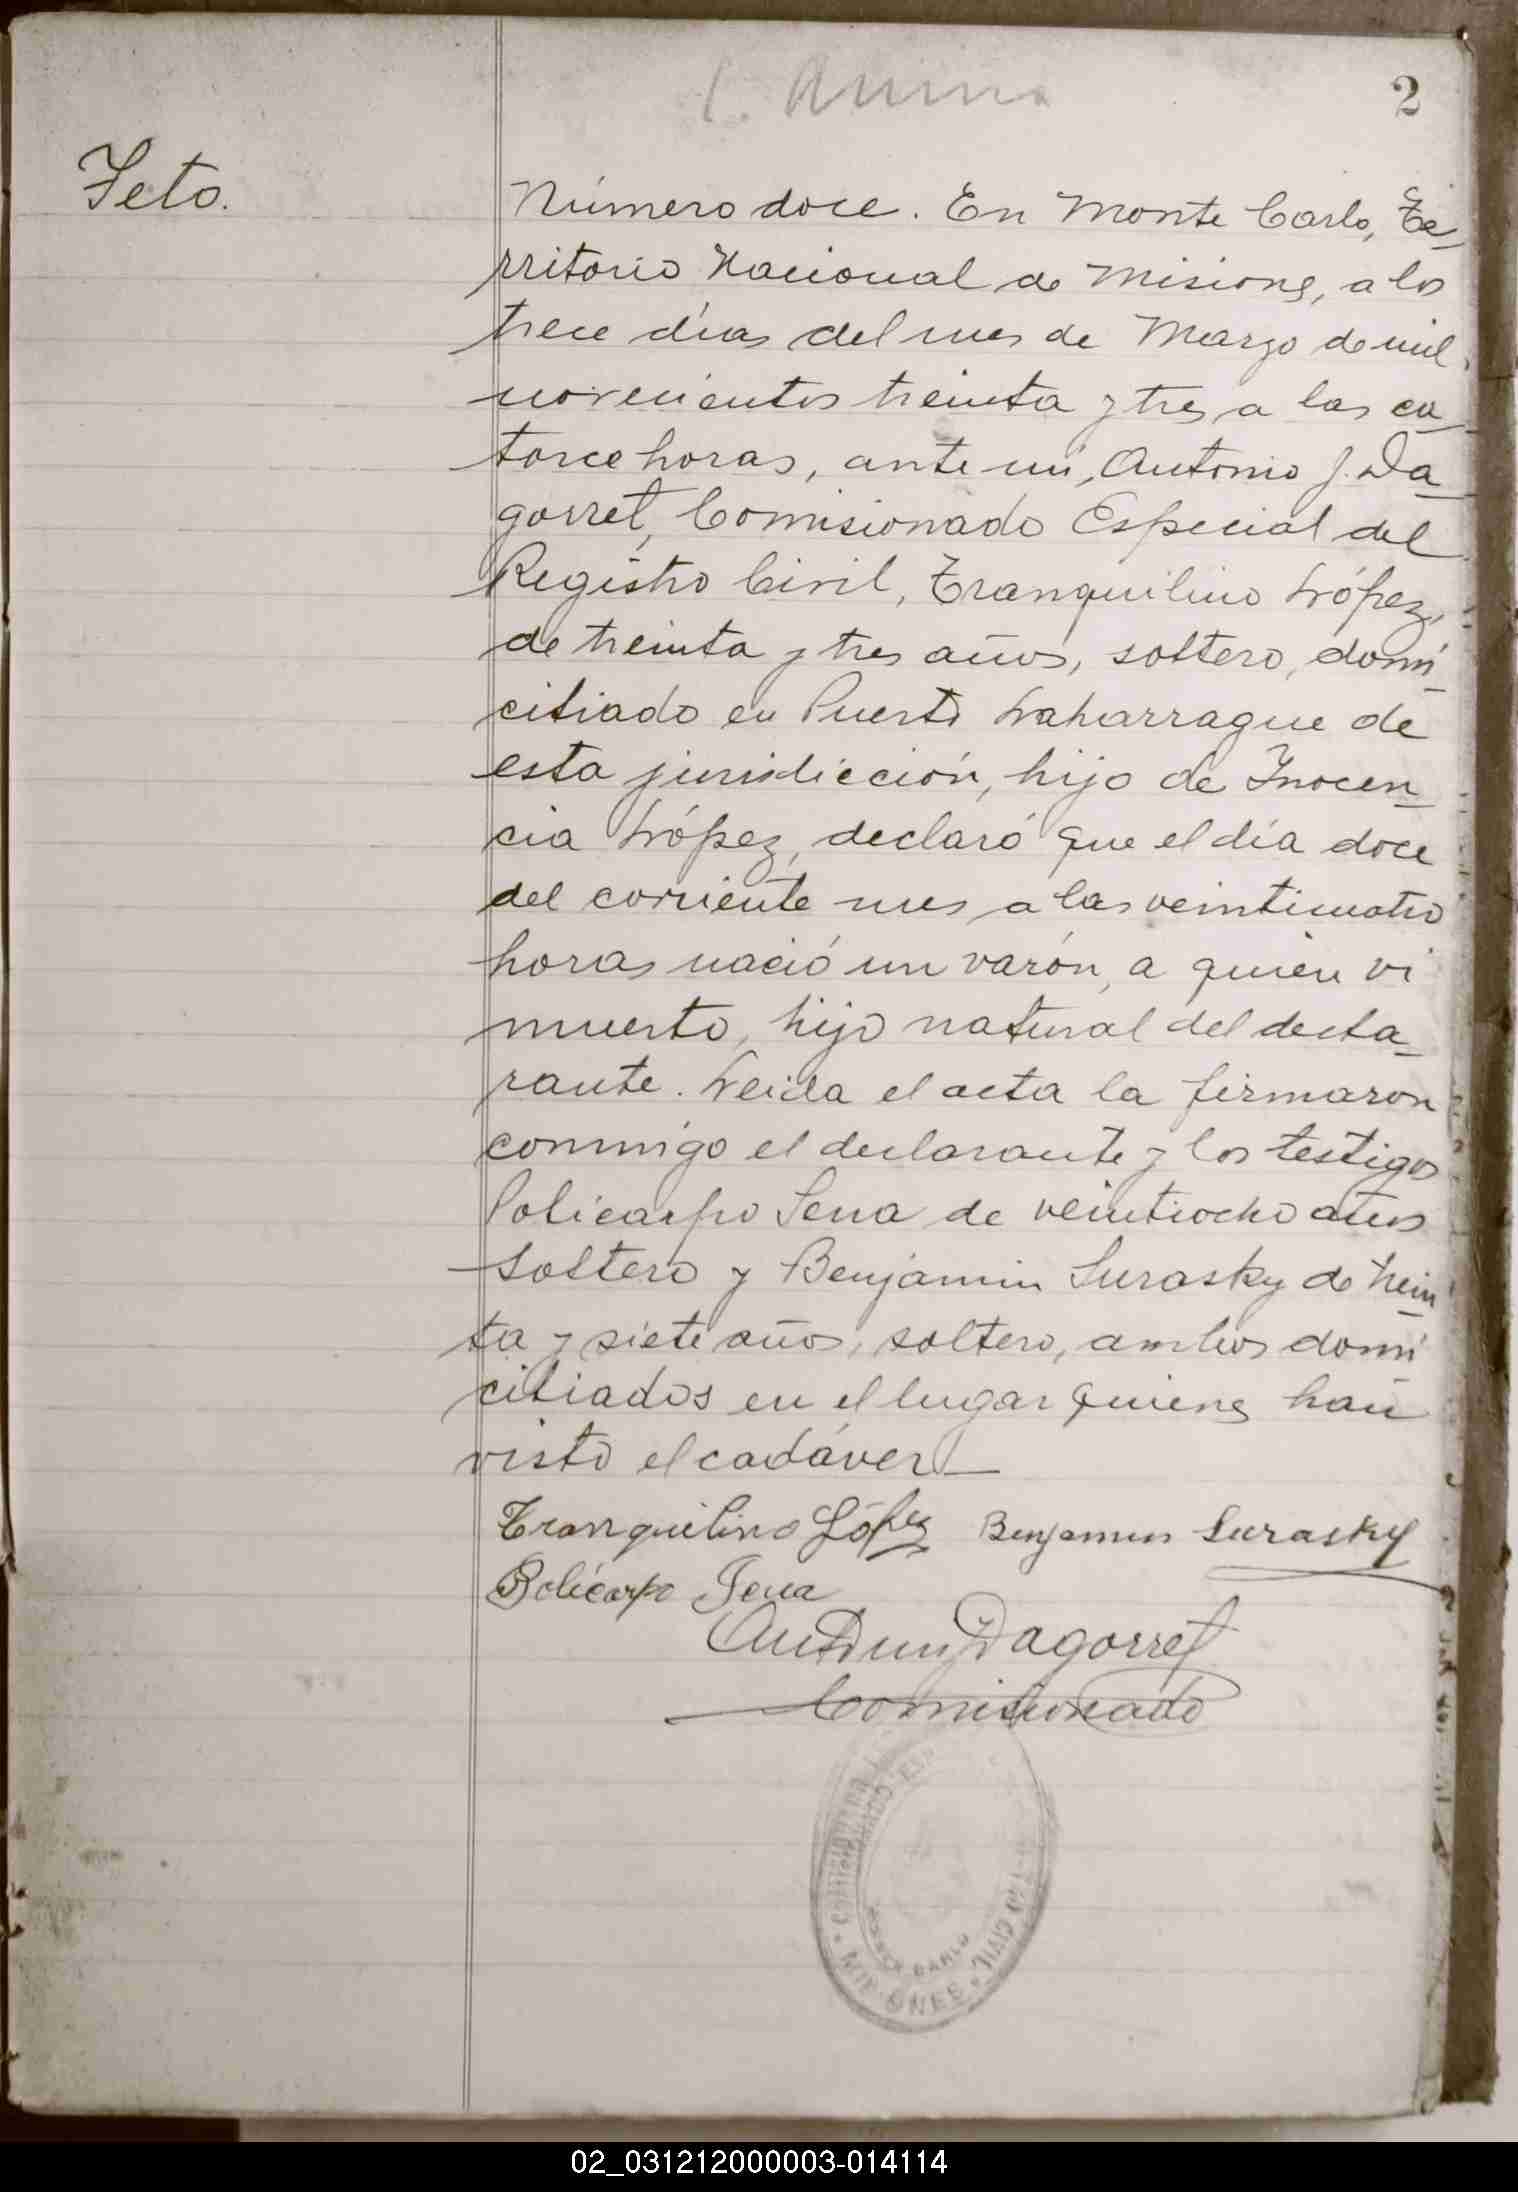 2
Feto.
Número doce. En Monte Carlo, Te-
rritorio Nacional de Misiones, a los
trece días del mes de Marzo de mil
novecientos treinta y tres a las ca-
torce horas, ante mí, Antonio J. Da-
gorret, Comisionado Especial del
Registro Civil, Tranquilino López,
de treinta y tres años, soltero, domi-
ciliado en Puerto Laharrague de
esta jurisdicción, hijo de Inocen-
cia López, declaró que el día doce
del corriente mes a las veinticuatro
horas nació un varón, a quien vi
muerto, hijo natural del decla-
rante. Leida el acta la firmaron
conmigo el declarante y los testigos
Policarpo Sena de veintiocho años
soltero y Benjamin Surasky de trein-
ta y siete años, soltero, ambos domi
ciliados en el lugar quienes han
visto el cadáver—
Tranquilino López Benjamin Surasky
Policarpo Sena
Dagorret
Comisionado
CIVIL
CARLO
02_031212000003-014114